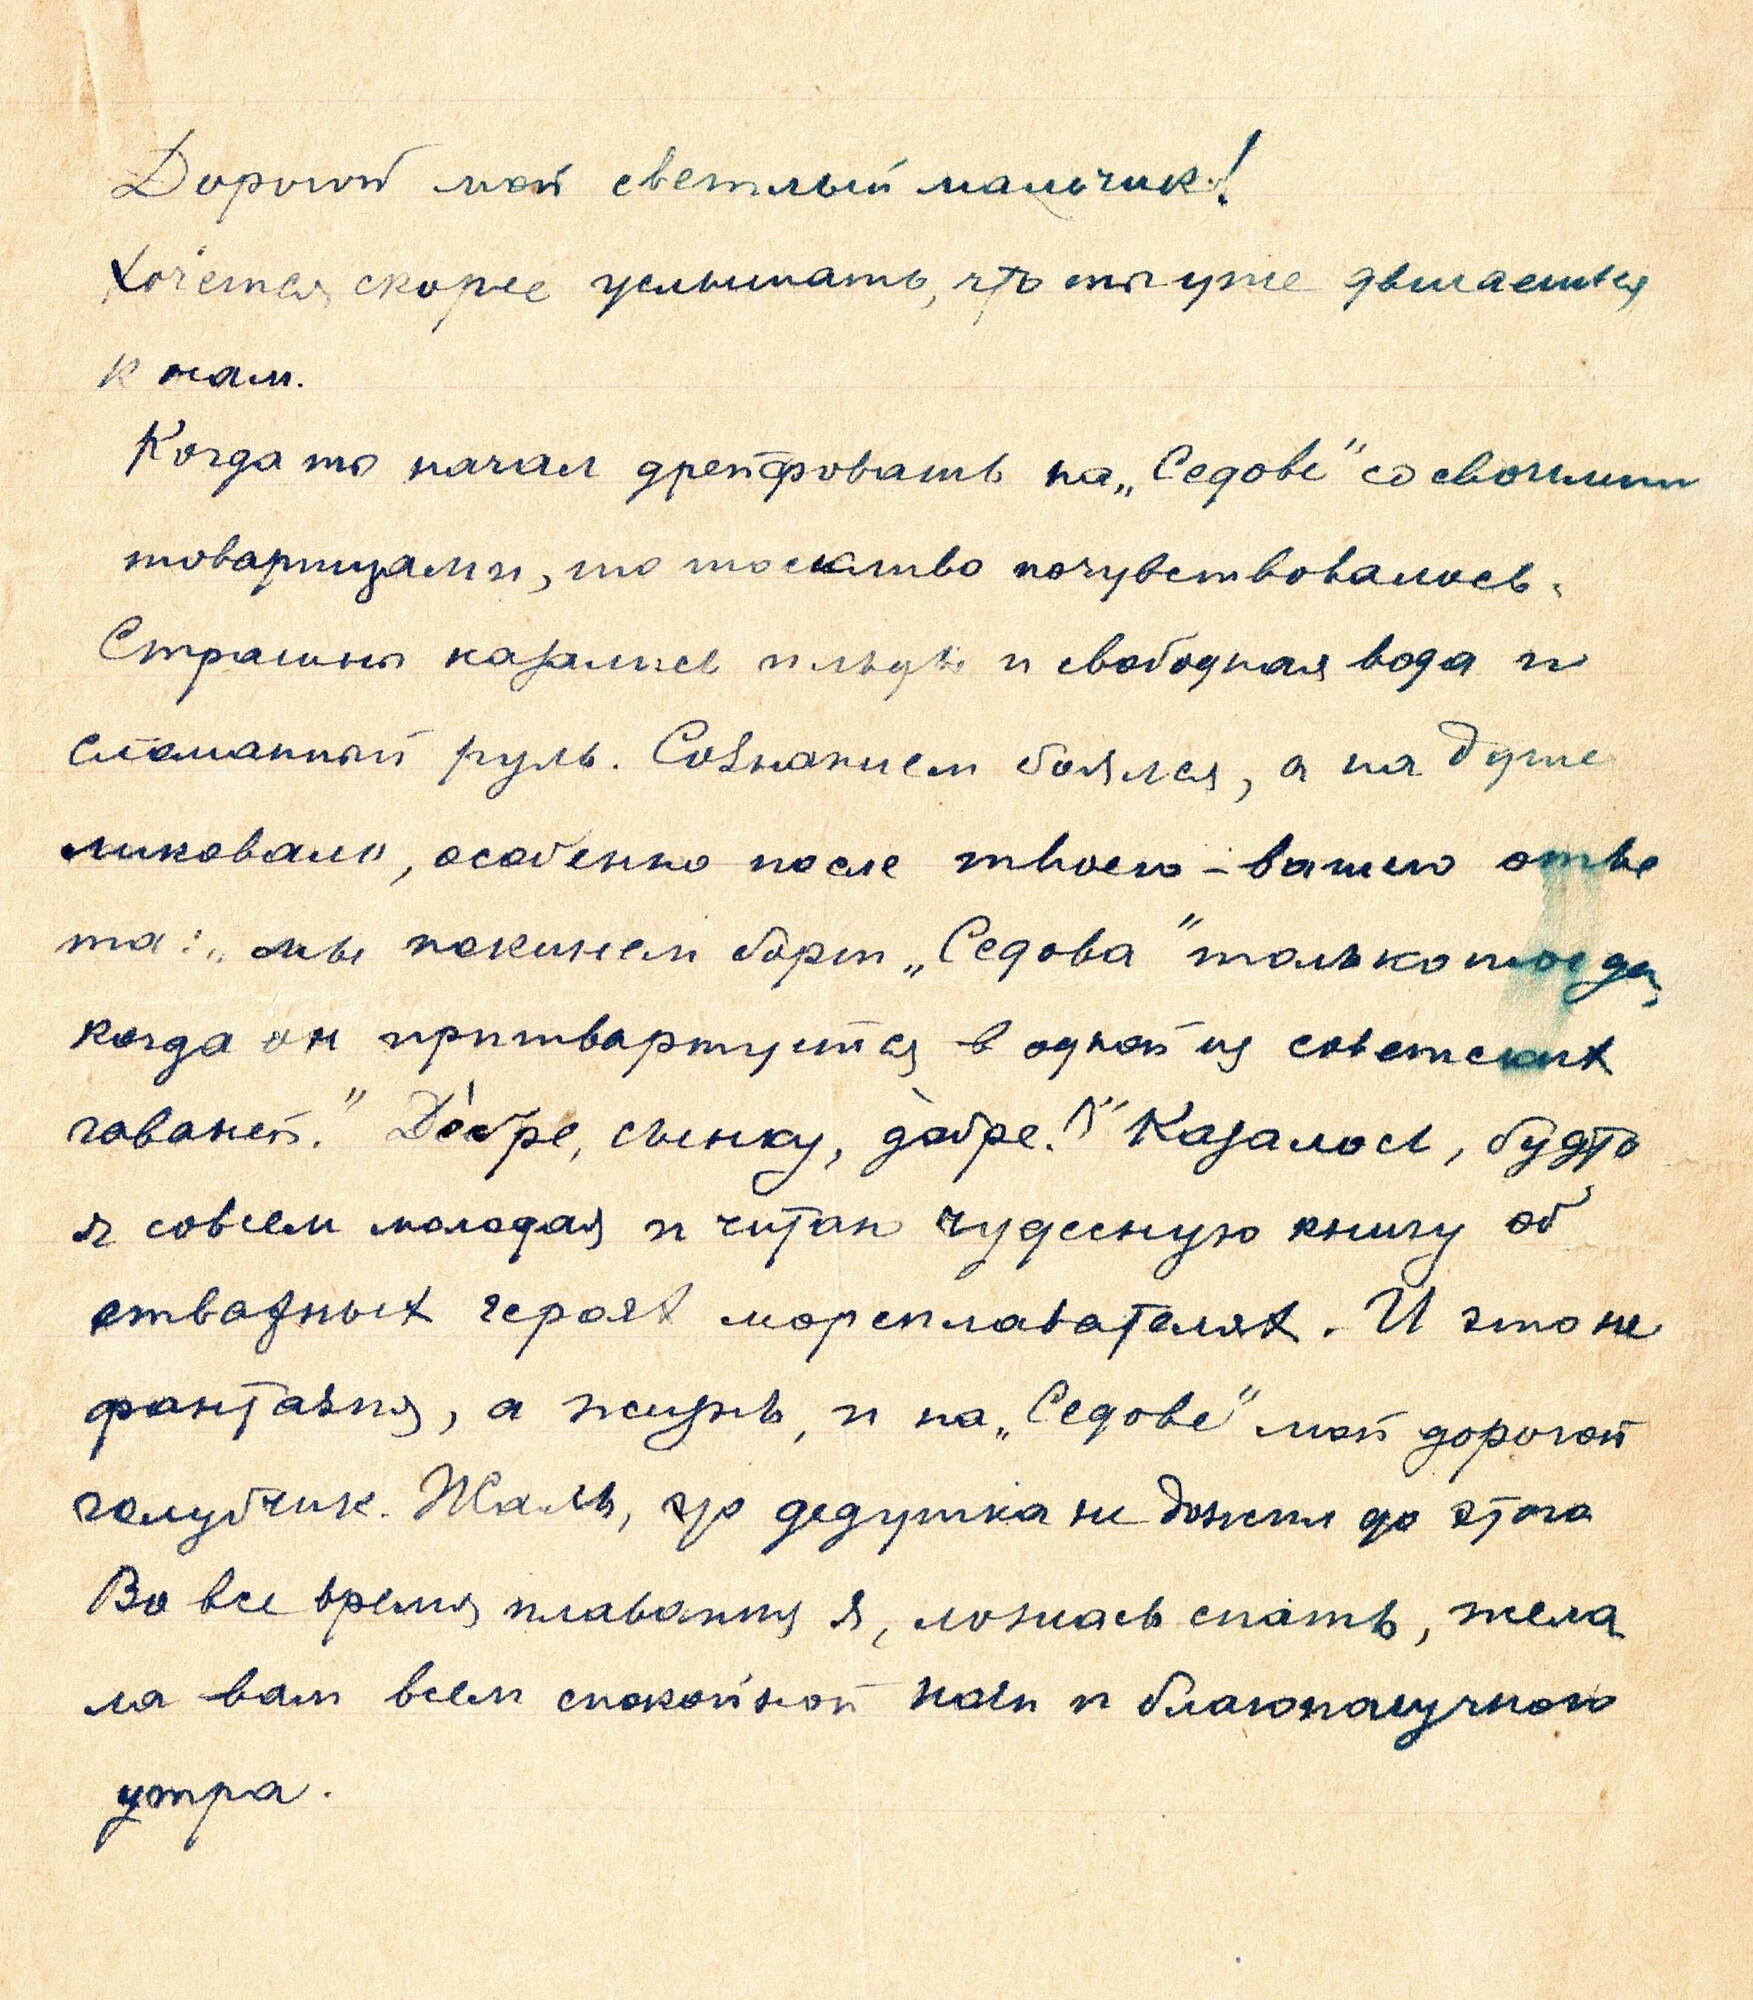 Дорогой мой светлый мальчик!
Хочется скорее услышать, что ты уже двигаешься
к нам.
Когда ты начал дрейфовать на „Седове" со своими
товарищами, то тоскливо почувствовалось.
Страшны казались и льды и свободная вода и
сломанный руль. Сознанием боялся, а на душе
ликовало, особенно после твоего – вашего отве
та: „мы покинем борт „Седова" только тогда,
когда он пришвартуется в одной из советских
гаваней." Добре, сынку, добре!" Казалось, будто
я совсем молодая и читаю чудесную книгу об
отважных героях мореплавателях. И это не
фантазия, а жизнь, и на „Седове" мой дорогой
голубчик. Жаль, что дедушка не дожил до этого
Во все время плавания я, ложась спать, жела
ла вам всем спокойной ночи и благополучного
утра.